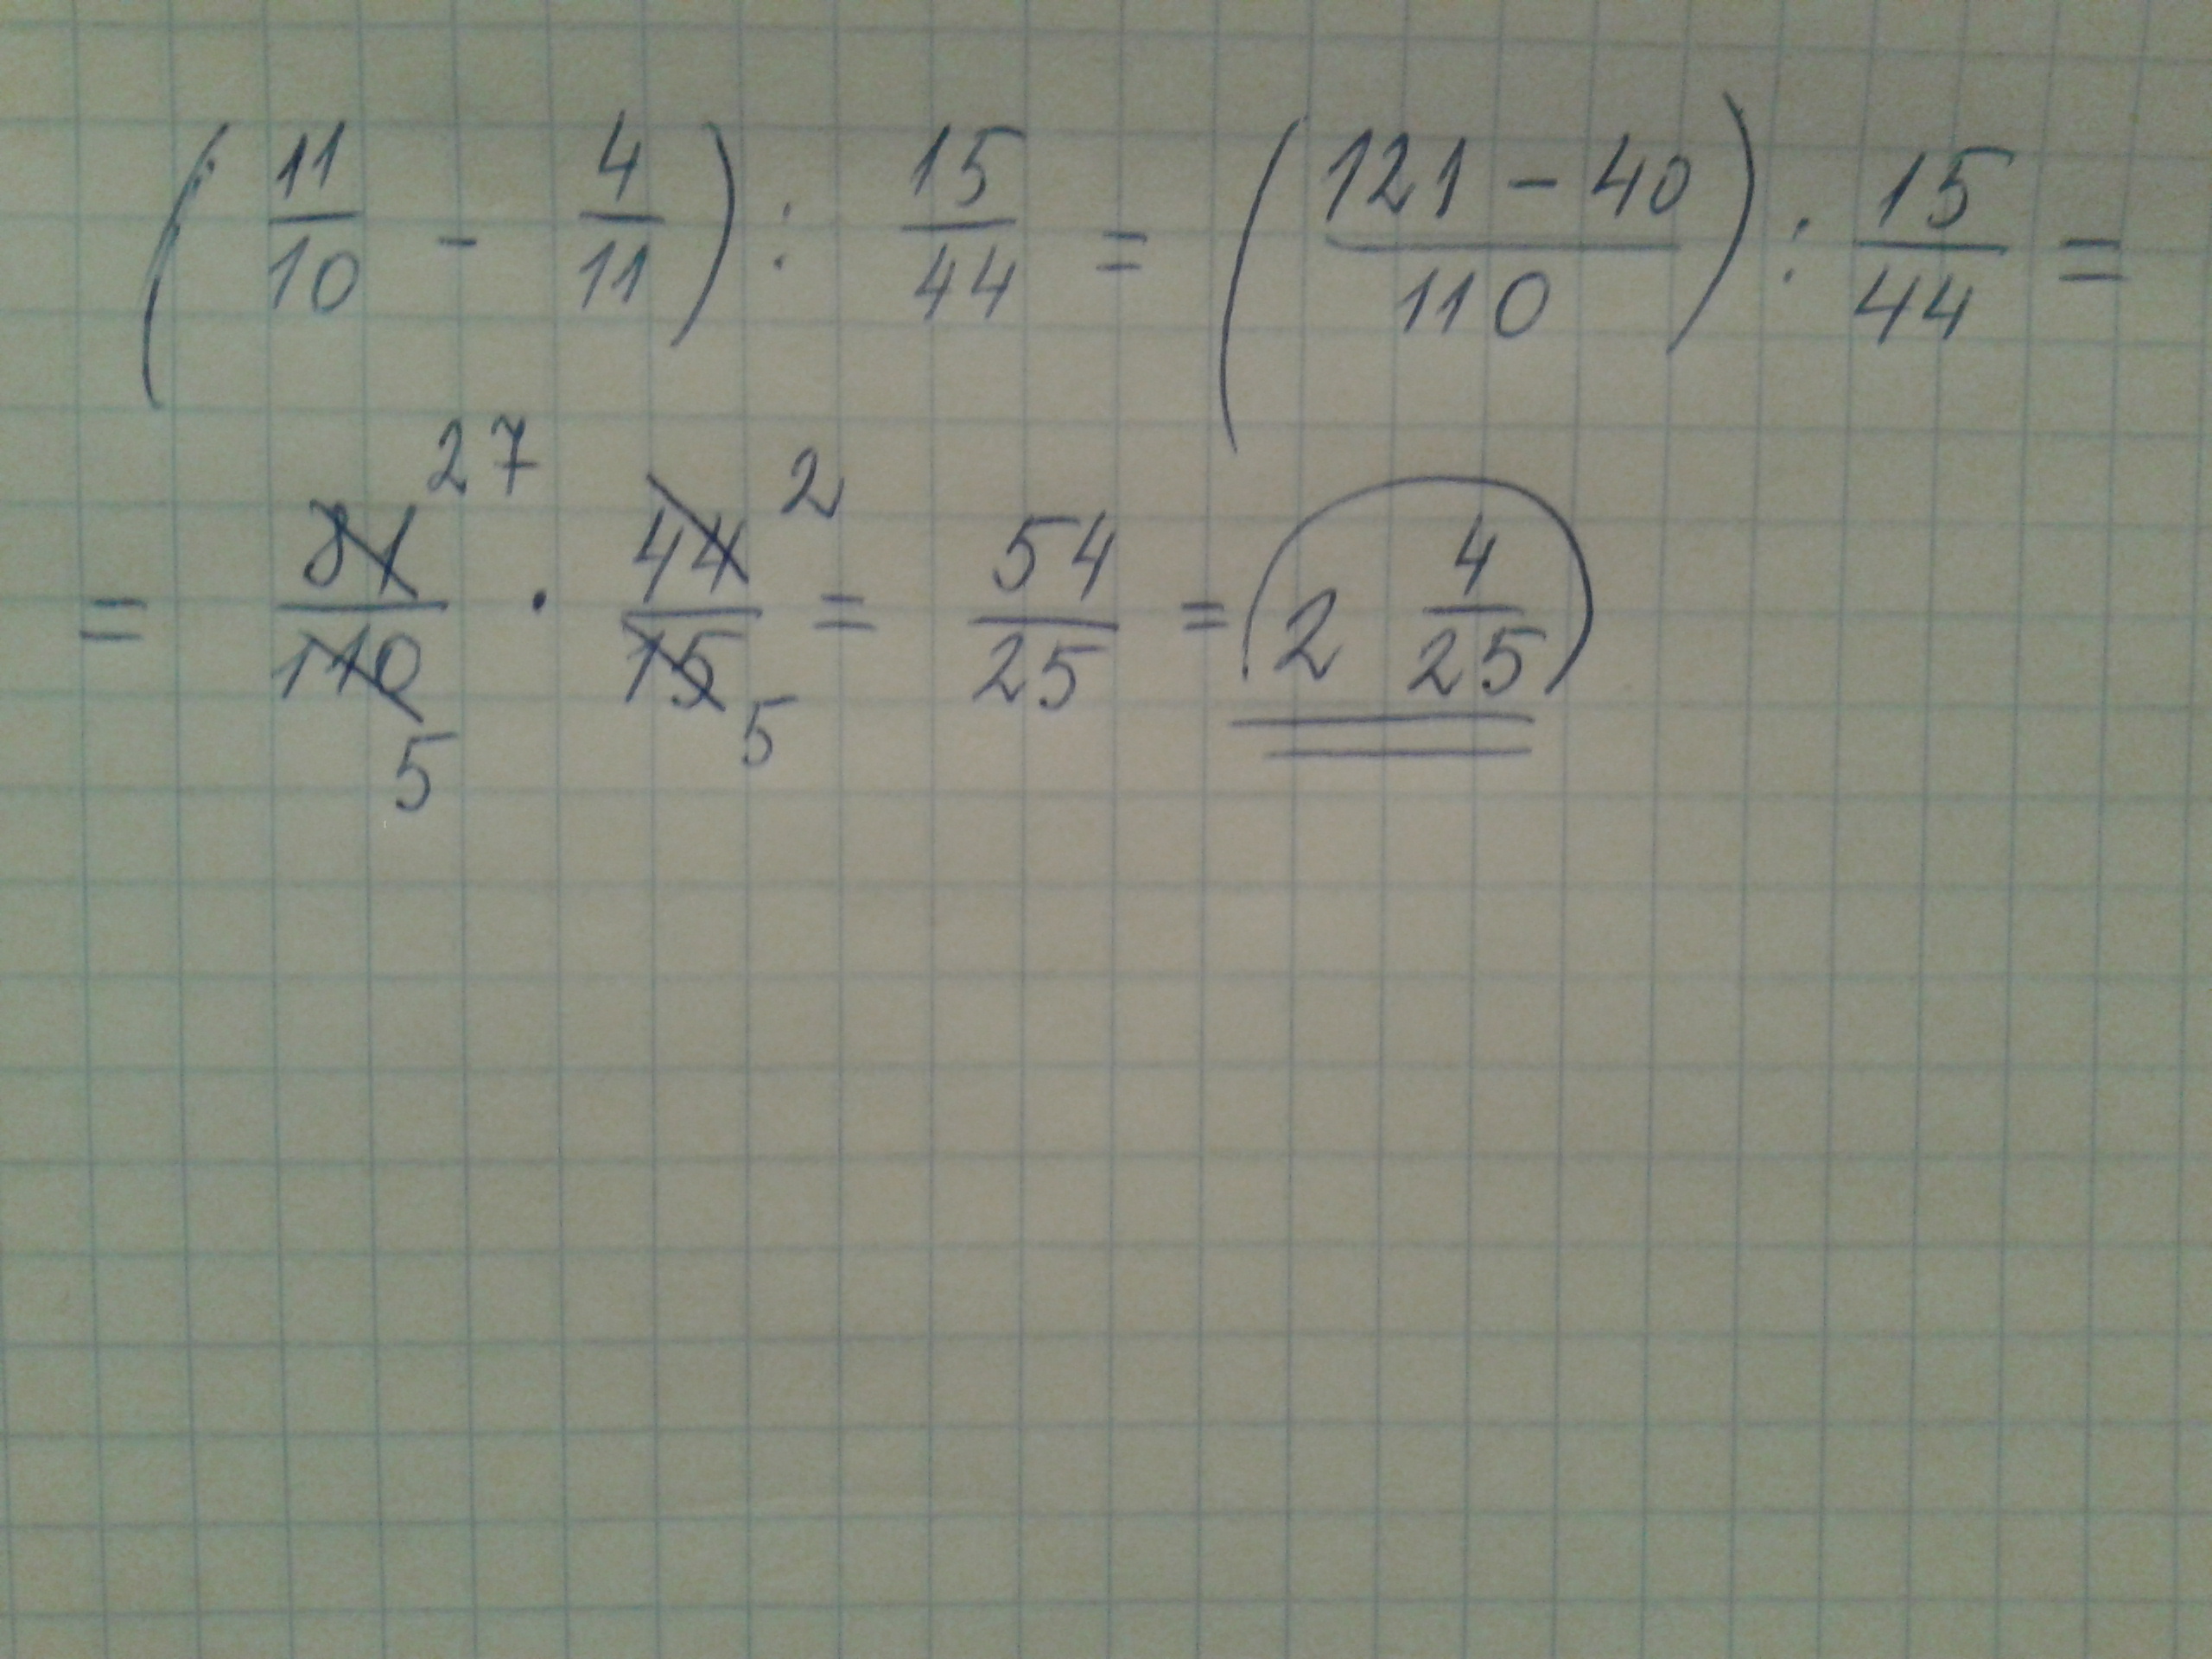 (11/10 - 4/11) : 15/44 = (121 - 40/110) : 15/44 =
= 81/110 27 5 · 44/15 2 5 = 54/25 = (2 4/25)